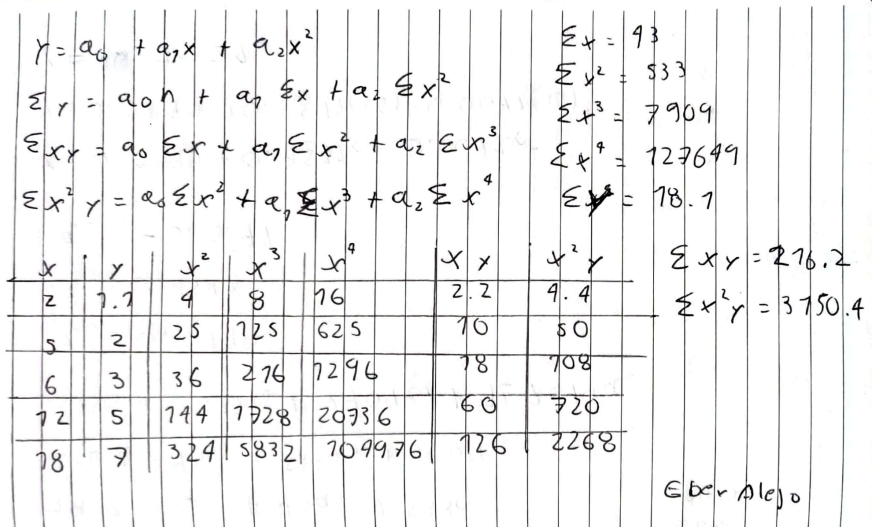 Y = a₀ + a₁x + a₂x²
Σy = a₀n + a₁ Σx + a₂ Σx²
Σxy = a₀ Σx + a₁ Σx² + a₂ Σx³
Σx²y = a₀ Σx² + a₁ Σx³ + a₂ Σx⁴
Σx = 43
Σx² = 533
Σx³ = 7909
Σx⁴ = 127649
Σy = 18.1
x y x² x³ x⁴ xy x²y
2 1.1 4 8 16 2.2 4.4
5 2 25 125 625 10 50
6 3 36 216 1296 18 108
12 5 144 1728 20736 60 720
18 7 324 5832 104976 126 2268
Σxy = 216.2
Σx²y = 3150.4
Eber Alejo